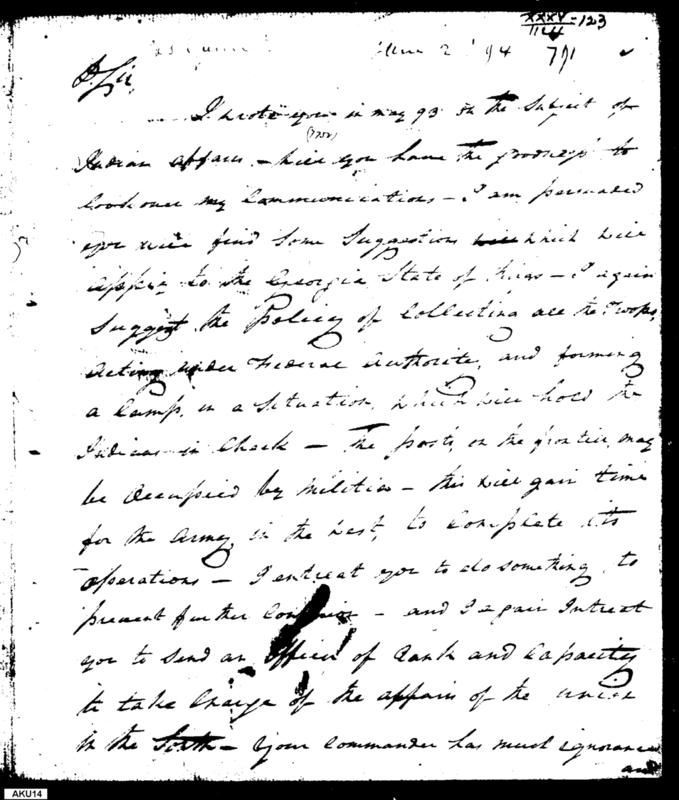 XXXV-123
June 2 94 791
Dr Sir
I wrote you in may 93 on the Subject of
(now)
Indian Affairs – will you have the goodness to
look over my Communications – I am persuaded
you will find Some Suggestions which will
apply to the Georgia State of things – I again
Suggest the Policy of Collecting all the Troops,
acting under Federal Authority, and forming
a Camp, in a Situation, which will hold the
Indians in Check – The posts, on the frontier, may
be Occupied by Militia – this will gain time
for the Army, in the West, to Complete its
operations – I entreat you to do something, to
prevent further – and I again Intreat
you to Send an Officer of Rank and Capacity
to take Charge of the affairs of the union
in the South – Your Commander has much ignorance
and
AKU14